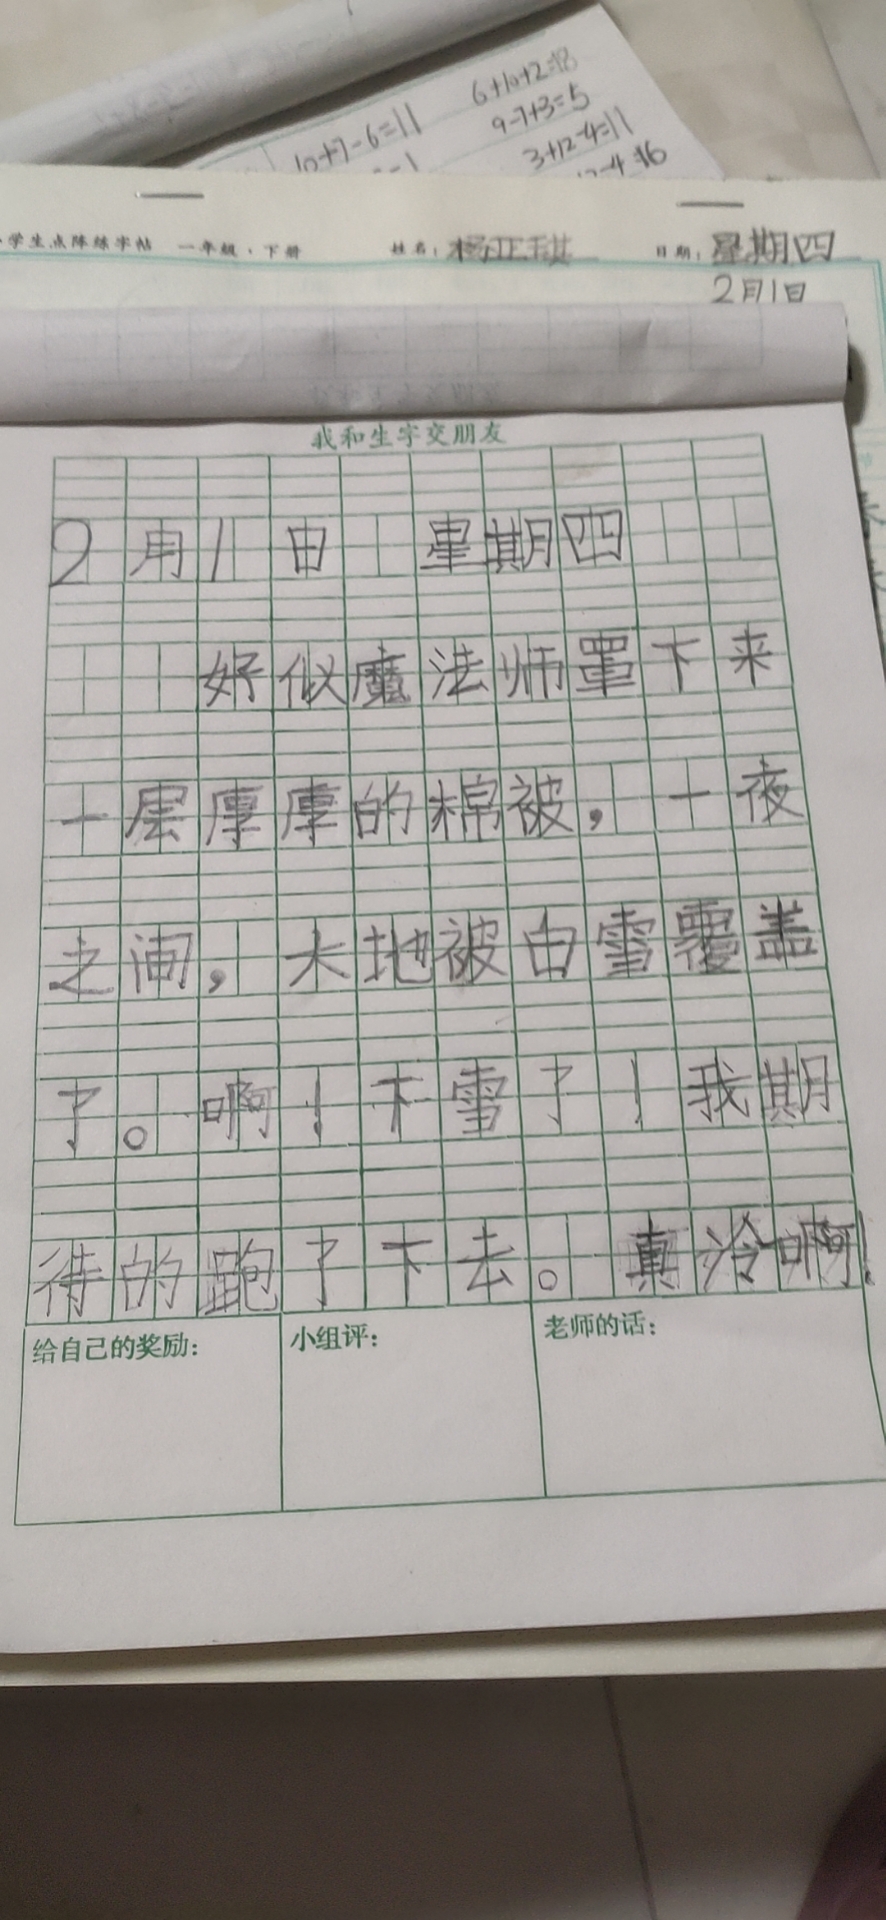 6+10+2=18
10+7-6=11
9-7+3=5
3+12-4=11
学生点阵练字帖 一年级·下册 姓名: 日期: 星期四
2月1日
我和生字交朋友
2月1日 星期四
好似魔法师罩下来
一层厚厚的棉被,一夜
之间,大地被白雪覆盖
了。啊!下雪了!我期
待的跑了下去。真冷啊!
给自己的奖励: 小组评: 老师的话: